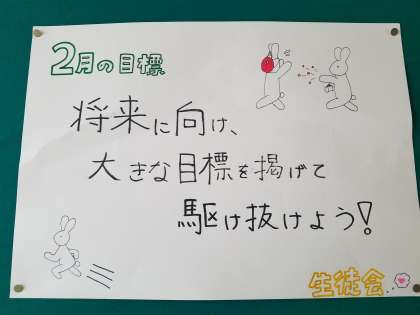 2月の目標
将来に向け、
大きな目標を掲げて
駆け抜けよう!
生徒会